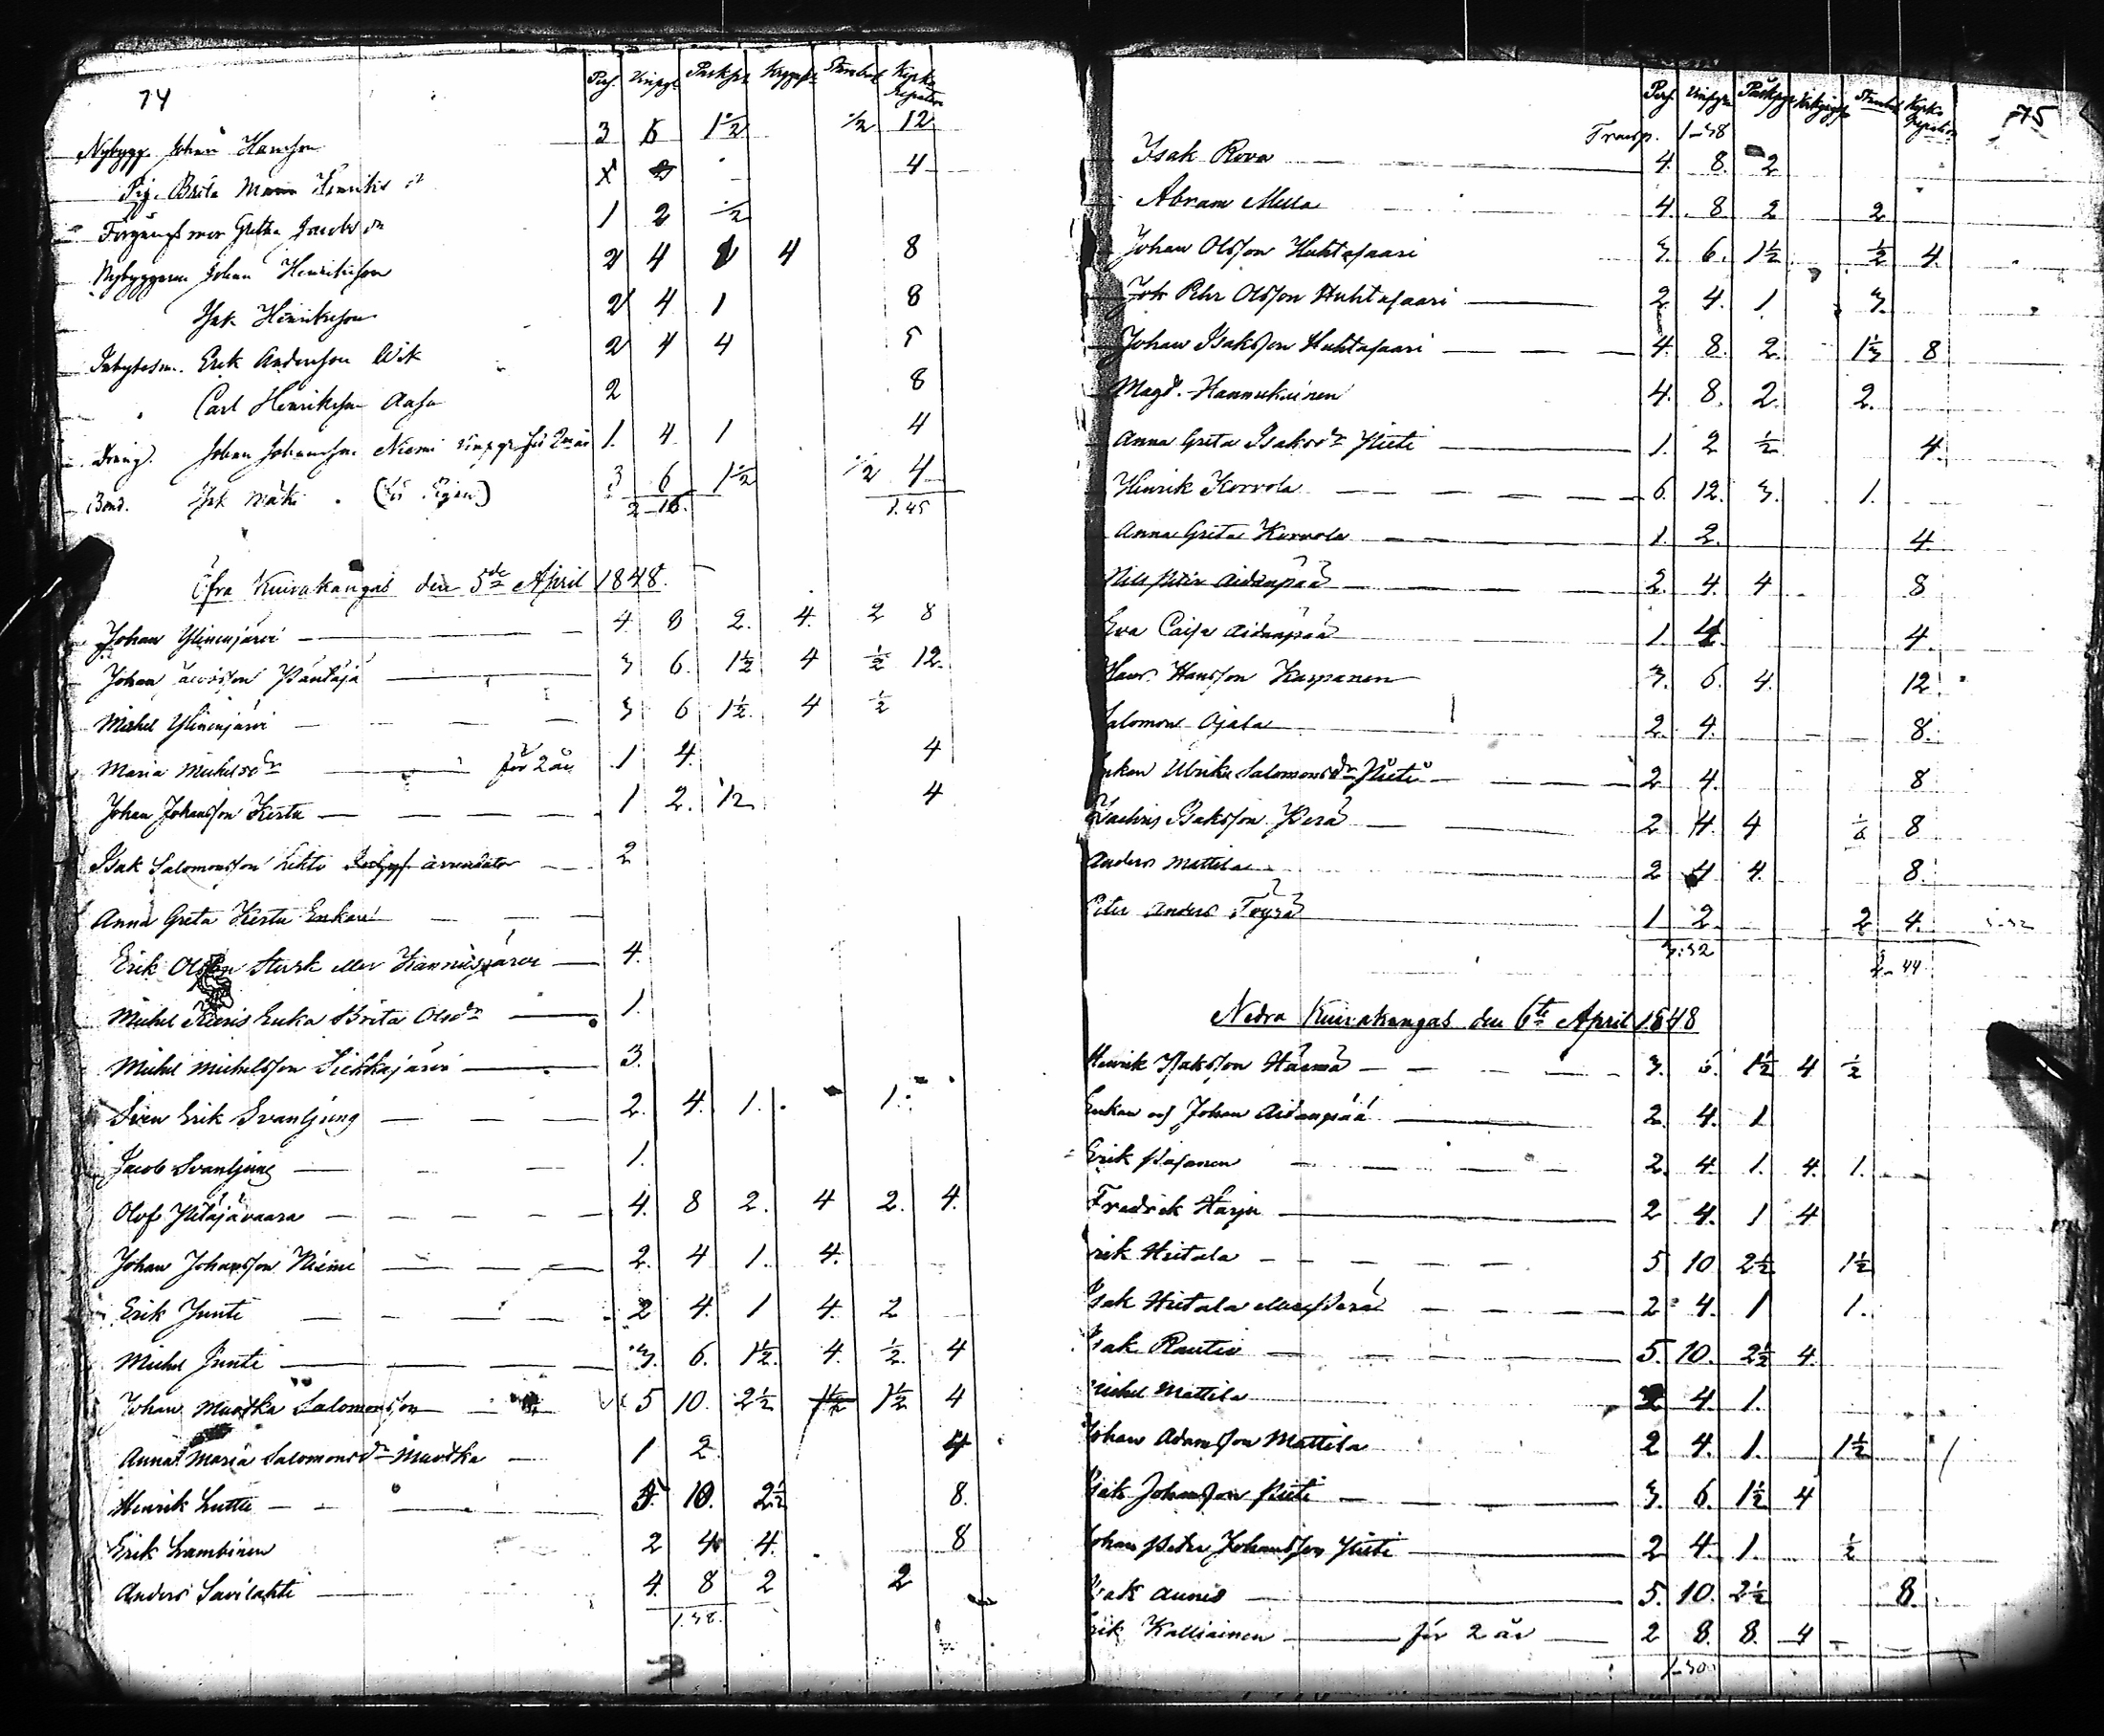 74
Pers. Vinpgr Påskpr Stambol Kyrko
Nybygg. Johan Hansson 3 6 1½ ½ 12
Pig. Brita Henriks dr 4
Greta Jacobs dr 1 2 ½
Nybyggaren Johan Henriksson 2 4 4 8
Isak Henriksson 2 4 1 8
Inhytesm. Erik Andersson Wik 2 4 4 5
Carl Henriksson 2 8
Dreng. Johan Johansson Niemi vinpgr för 2ne år 1. 4 1 4
Bond. Isk Mäki 3 6 1½ ½ 4
2–16. 1.45
Öfra Kuivakangas den 5de April 1848.
Johan Ylinenjärvi 4. 8 2. 4. 2 8
Johan Pändäjä 3 6. 1½ 4 ½ 12.
Michel Ylinenjärvi 3 6 1½ 4 ½
Maria Michelsdr för 2 år 1 4. 4
Johan Johansson Kerttu 1 2. ½ 4
Isak Salomonsson Lehto arrendator 2
Anna Greta Kerttu Enkan
Erik Olsson Stark eller Kannusjärvi 4.
Michel Kieris Enka Brita Olsdr 1.
Michel Michelsson Liekkajärvi 3.
Sven Erik Svanljung 2. 4. 1. 1.
Jacob Svanljung 1.
Olof Pitäjävaara 4. 8 2. 4 2. 4.
Johan Johansson Niemi 2. 4 1. 4.
Erik Junti 2 4. 1 4. 2
Michel Junti 3. 6. 1½ 4. ½ 4
Johan Muotka Salomonsson 5 10. 2½ 1½ 1½ 4
Anna Maria Salomonsdr Muotka 1 2 4
Henrik Luttu 5. 10. 2½ 8.
Erik Lambinen 2 4 4. 8
Anders Savilahti 4. 8 2 2
1.38.
75
Pers. Vinpgr Påskpgr Stambol Kyrko
Transp. 1–38
Isak Rova 4. 8. 2
Abram Mella 4. 8 2 2
Johan Olsson Huhtasaari 3. 6. 1½ ½ 4.
Pehr Olsson Huhtasaari 2 4. 1. 3.
Johan Isaksson Huhtasaari 4. 8. 2. 1½ 8
Magd. Hannukainen 4. 8. 2. 2.
Anna Greta Isaksdr Pieti 1. 2 ½ 4.
Henrik Korvola 6. 12. 3. 1.
Anna Greta Korvola 1. 2. 4.
Nils Petter Aidanpää 2. 4. 4 8
Eva Caisa Aidanpää 1. 4. 4.
Hans Hansson Karpanen 3. 6. 4. 12.
Salomon Ojala 2. 4. 8.
Enkan Ulrika Salomonsdr Pieti 2 4. 8
Zachris Isaksson Perä 2 4. 4 8
Anders Mattila 2 4 4. 8.
Peter Anders Töyrä 1 2 2 4.
3:32
2–44
Nedra Kuivakangas den 6te April 1848
Henrik Isaksson Härmä 3. 6. 1½ 4 ½
Enkan och Johan Aidanpää 2. 4. 1.
Erik Pajanen 2. 4. 1. 4. 1.
Fredrik Harju 2 4. 1 4
Erik Hietala 5. 10 2½ 1½
Isak Hietala eller Perä 2 4. 1 1.
Isak Rautio 5. 10. 2½ 4.
Michel Mattila 2 4 1.
Johan Adamsson Mattila 2 4. 1. 1½
Isak Johansson Pieti 3. 6. 1½ 4
Johan Peter Johansson Pieti 2 4. 1. ½
Isak Aunis 5. 10. 2½ 8.
Erik Kalliainen för 2 år 2 8. 8. 4
1–30